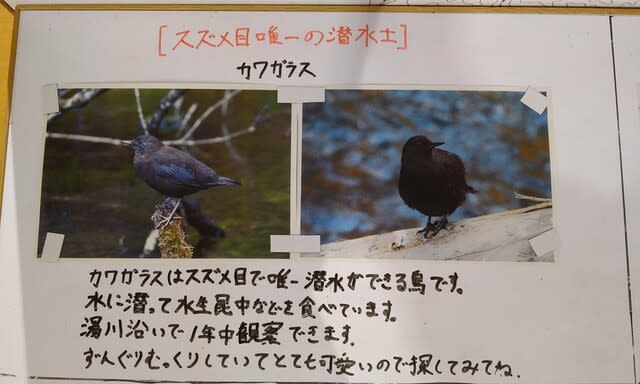 [スズメ目唯一の潜水士]
カワガラス
カワガラスはスズメ目で唯一潜水ができる鳥です。
水に潜って水生昆虫などを食べています。
湯川沿いで1年中観察できます.
ずんぐりむっくりしていてとても可愛いので探してみてね.